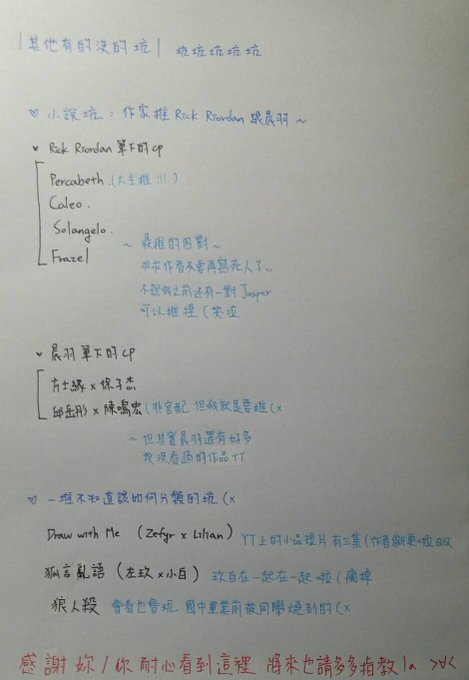 |其他有的沒的坑| 坑坑坑坑坑
♡ 小說坑：作家推 Rick Riordan 跟晨羽～
♥ Rick Riordan 筆下的cp
Percabeth (大主推!!!)
Caleo.
Solangelo.
Frazel
～最推的四對～
求求作者不要再寫死人了...
不然我之前還有一對 Jasper
可以推捏 (哭泣
♥ 晨羽筆下的cp
方士緣 × 徐子杰
邱岳彤 × 陳鳴宏 (非官配 但我就是要推 (x
～但其實晨羽還有好多
我沒看過的作品TT
♡ 一堆不知道該如何分類的坑 (x
Draw with Me (Zefyr x Lilian) YT上的小品短片 有三集 (作者斷更啦QQ
狐言亂語 (左玖 × 小白) 玖白在一起在一起啦 (瘋掉
狼人殺 會看也會玩 國中畢業前被同學燒到的 (x
感謝妳/你 耐心看到這裡 將來也請多多指教 la >∀<